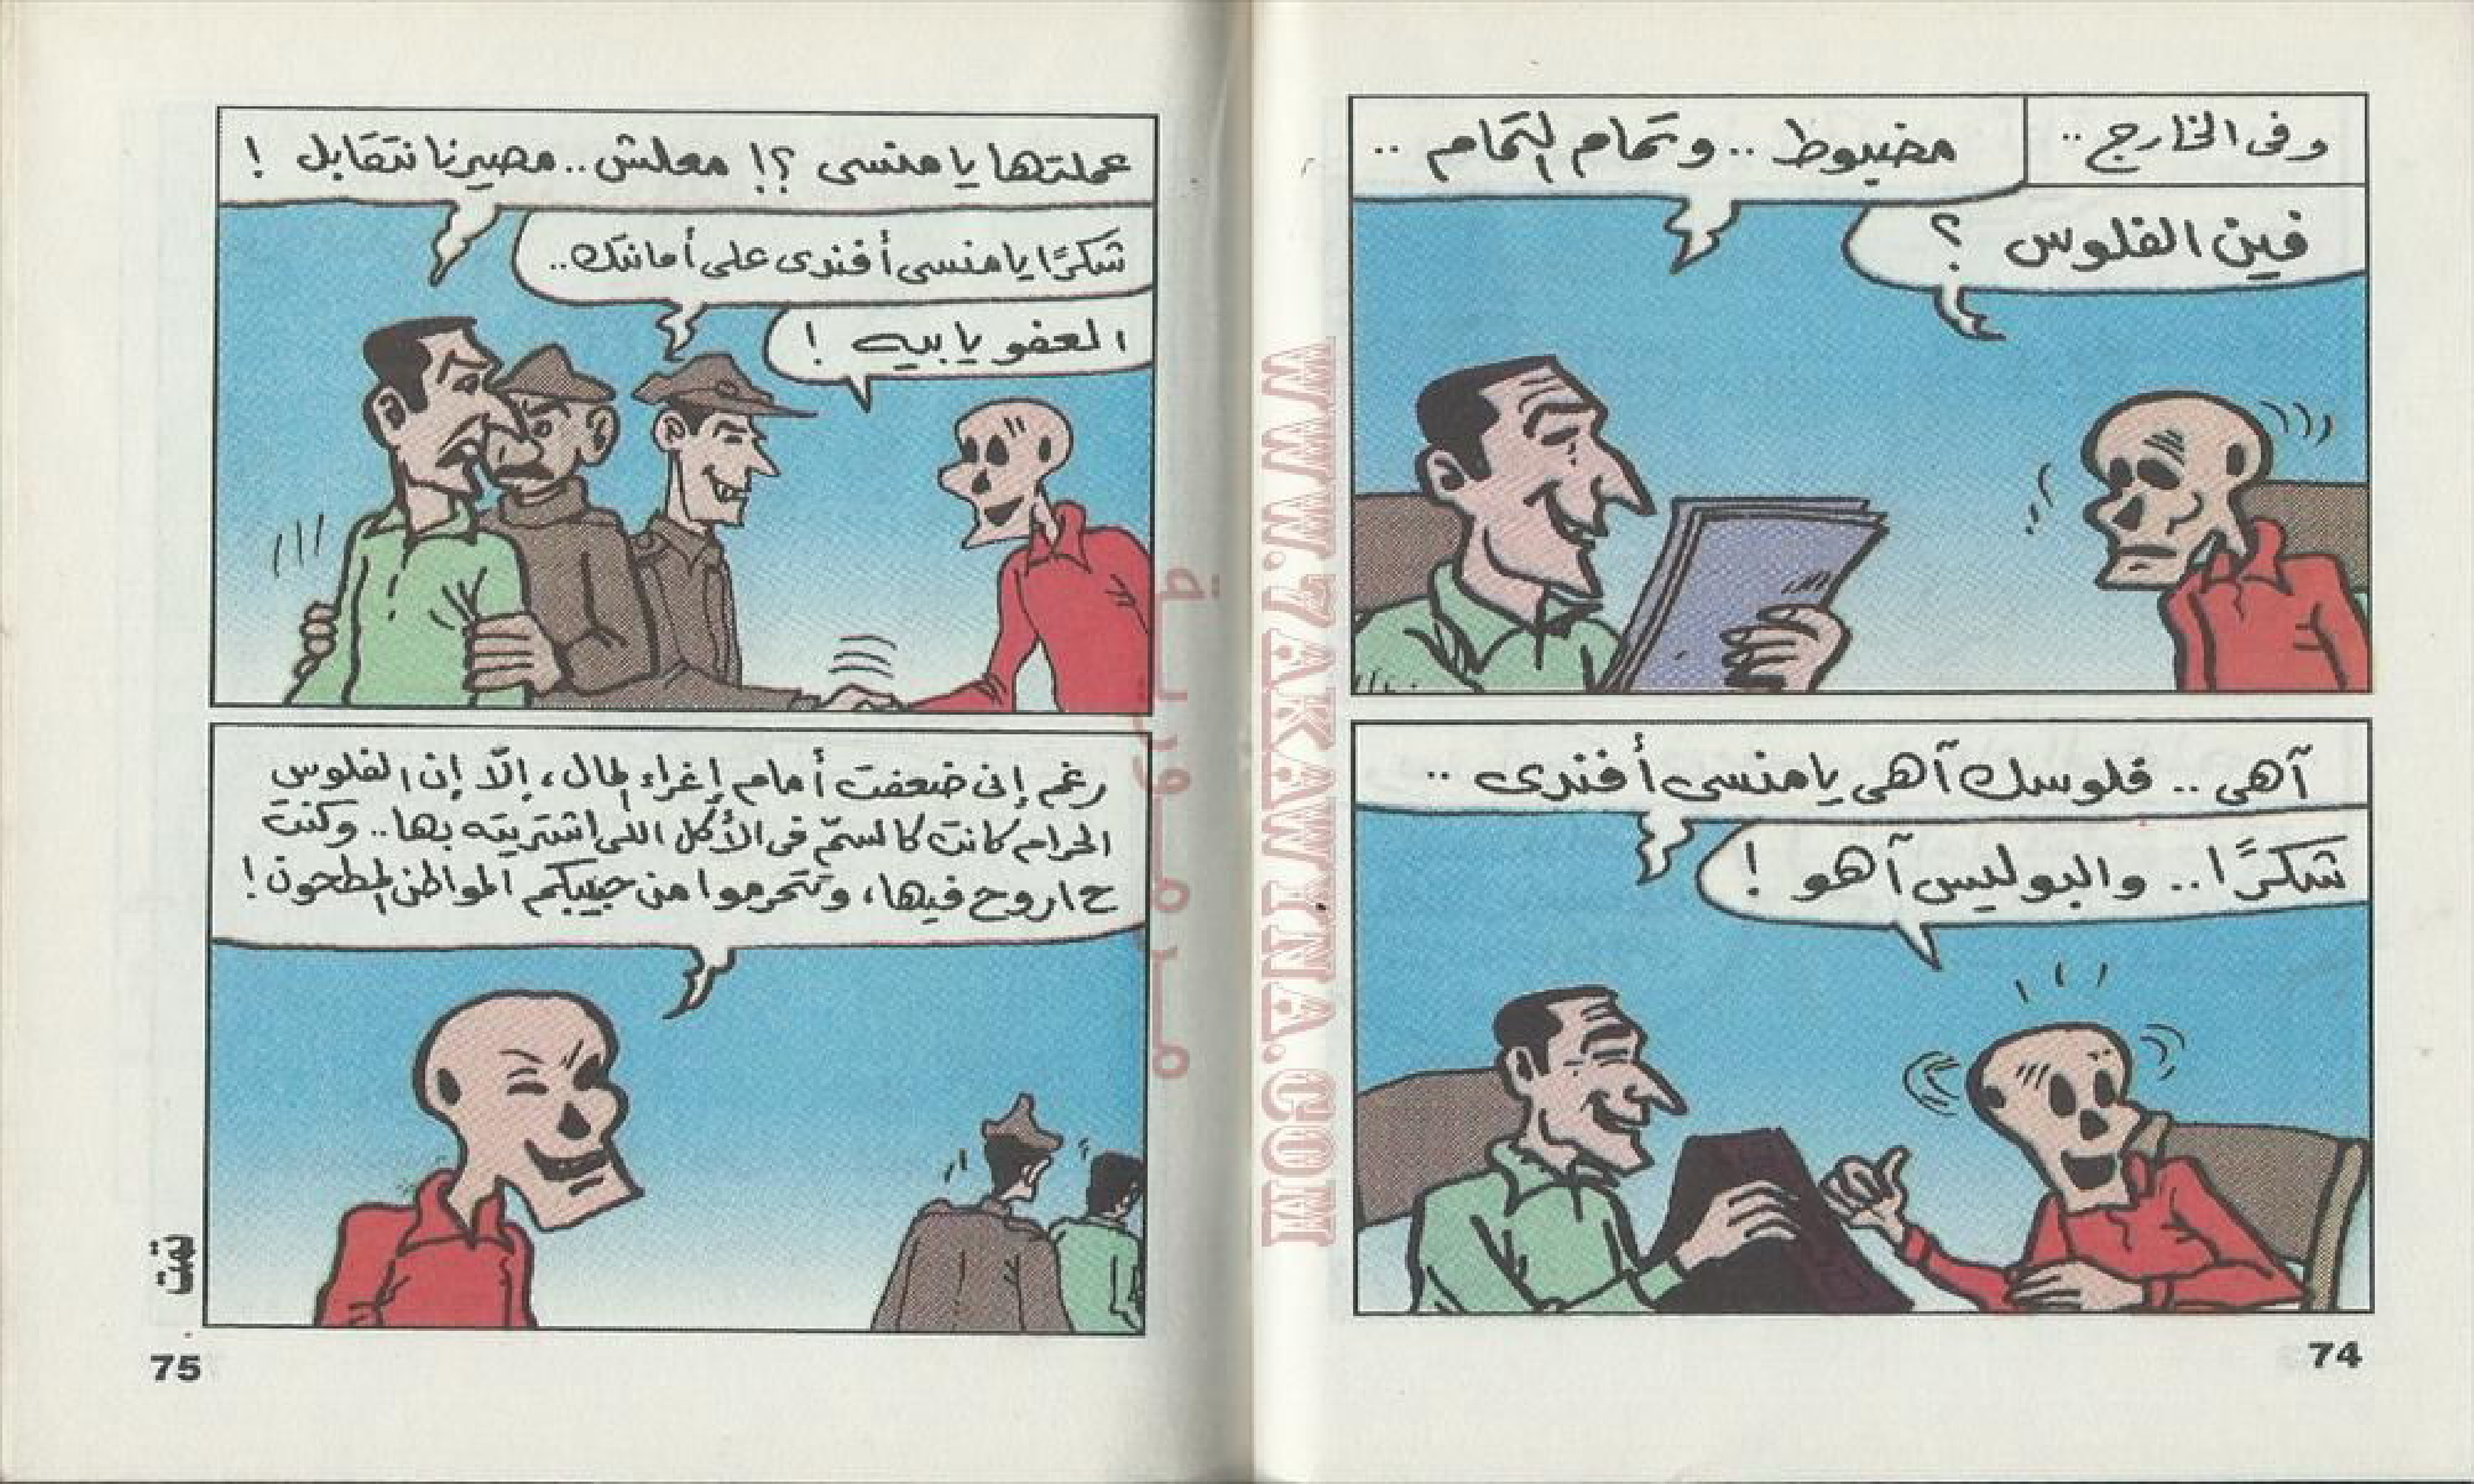 وفى الخارج ..
مضبوط .. وتمام التمام ..
فين الفلوس ؟
آهى .. فلوسك آهى يا منسى أفندى ..
شكرًا .. والبوليس آهو !
74
عملتها يا منسى ؟! معلش .. مصيرنا نتقابل !
شكرًا يا منسى أفندى على أمانتك ..
العفو يا بيه !
رغم إنى ضعفت أمام إغراء المال، إلّا إن الفلوس
الحرام كانت كالسمّ فى الأكل اللى اشتريته بها .. وكنت
ح اروح فيها، وتتحرموا من حبيبكم المواطن المطحون !
تمت
75
WWW.7AKAWINA.COM